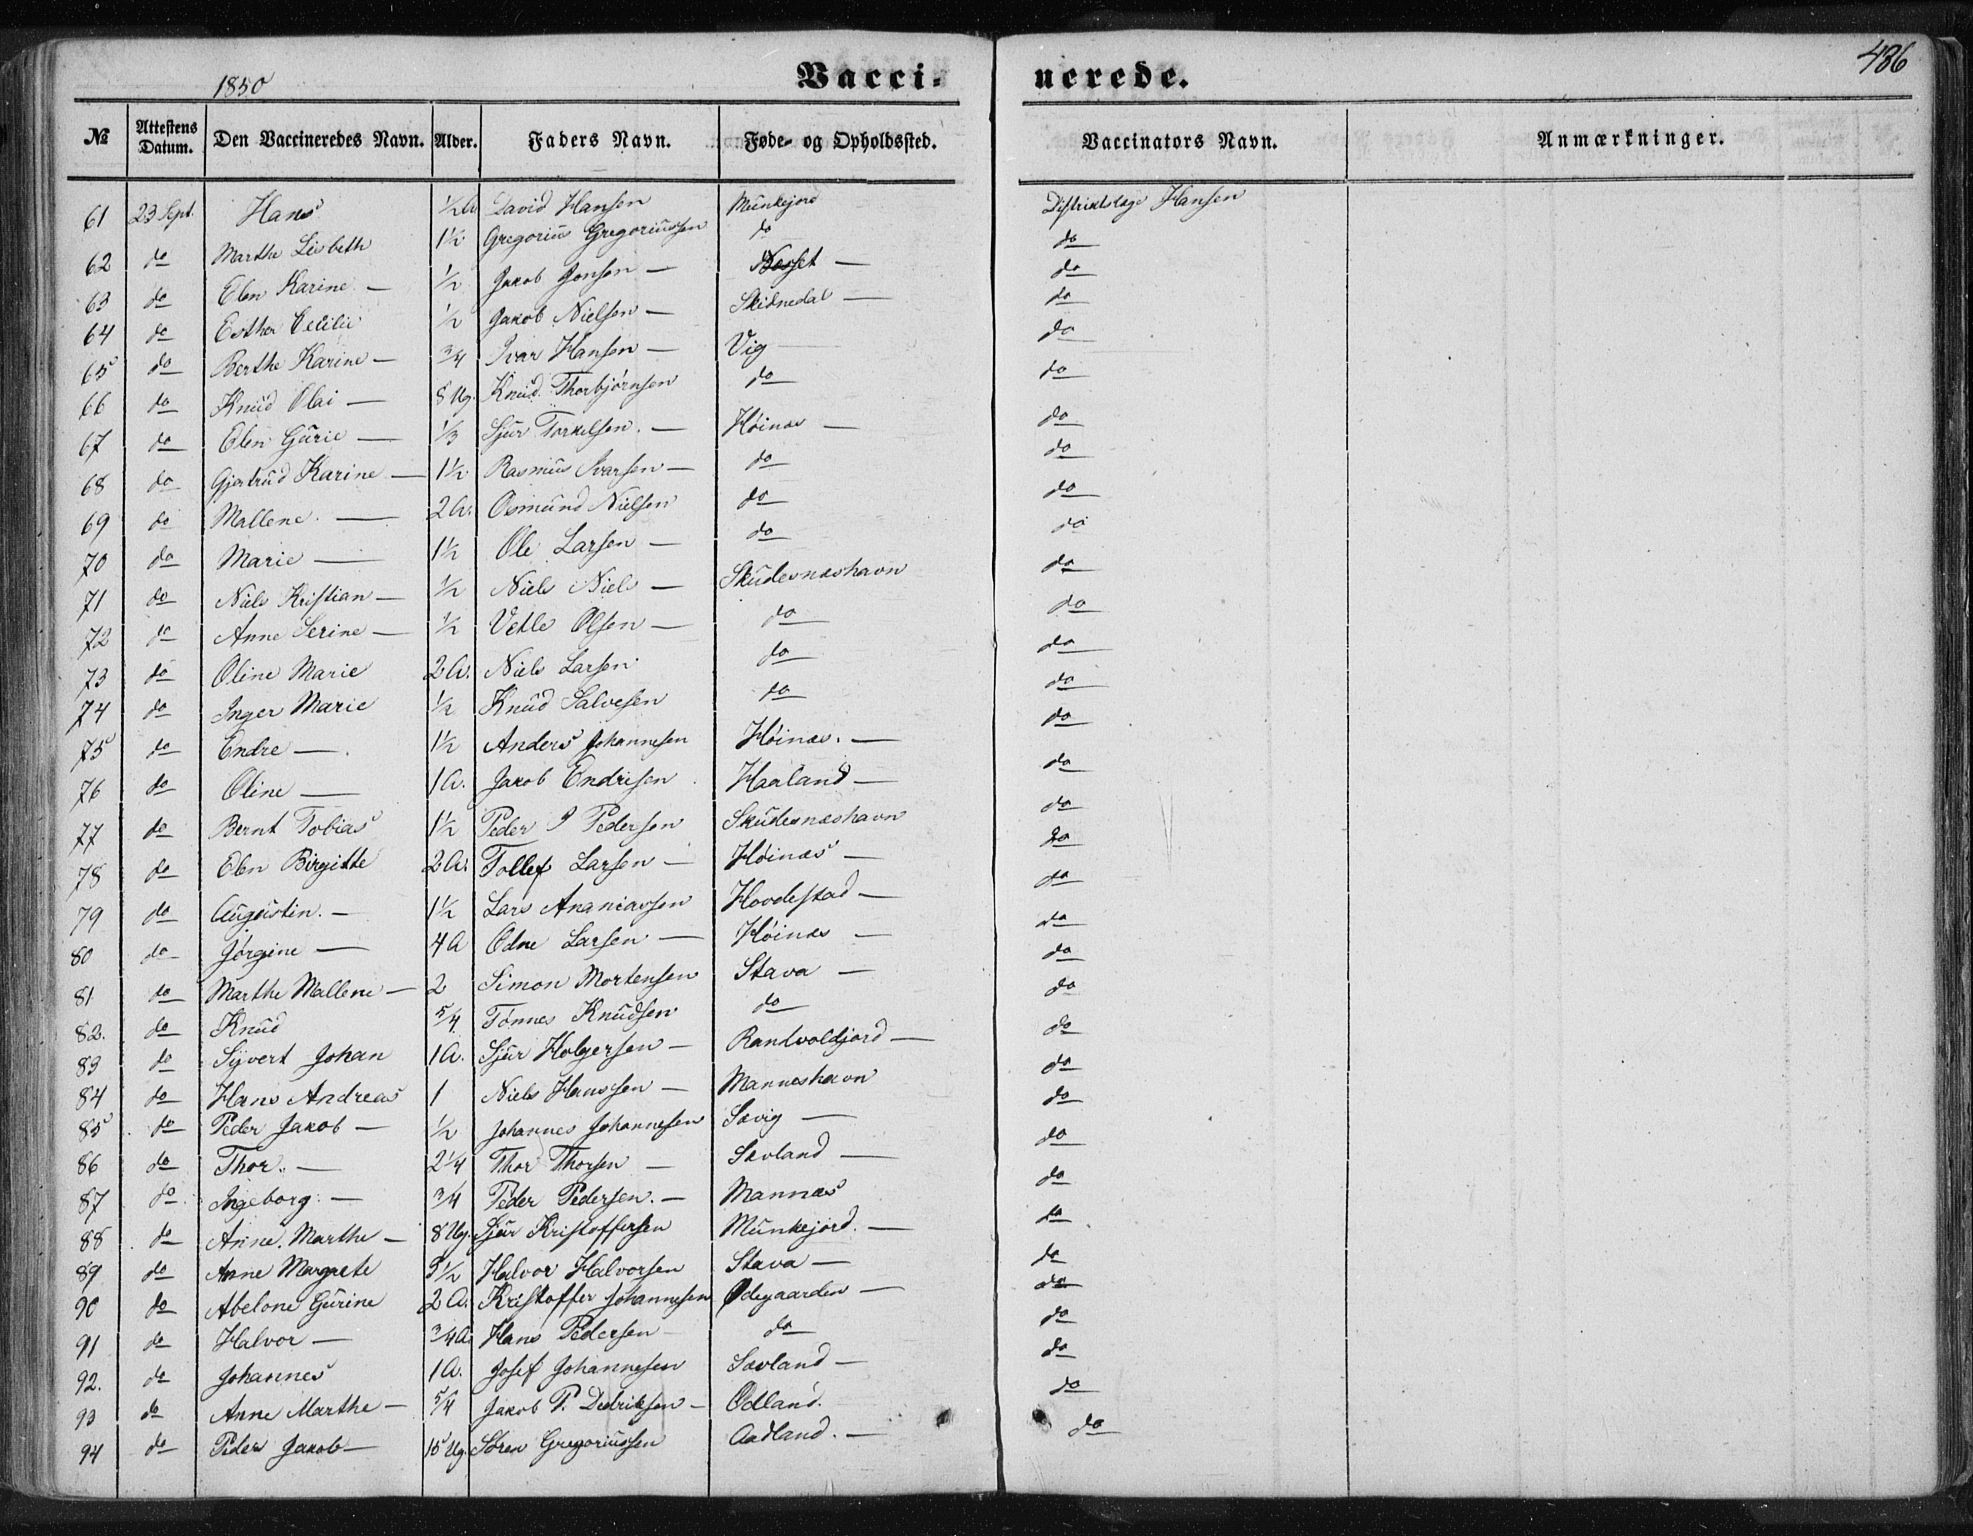 486
1850
Vaccinerede.
№ Attestens Datum. Den Vaccineredes Navn. Alder. Faders Navn. Føde- og Opholdssted. Vaccinators Navn. Anmærkninger.
61 23 Sept. Hans ½ A David Hansen Munkejord Distriktslæge Hansen
62 do Marthe Lisbeth 1½ Gregorius Gregoriussen do do
63 do Elen Karine — ½ Jakob Jonsen — do
64 do Esther Cecilie ½ Jakob Nielsen — Skidnedal — do
65 do Berthe Karine — ¾ Ivar Hansen — Vig — do
66 do Knud Olai — 8 Ug. Knud Thorbjørnsen do do
67 do Elen Gurie — ⅓ Sjur Torkelsen. — Høinæs — do
68 do Gjertrud Karine — 1½ Rasmus Ivarsen — do do
69 do Mallene. — 2 A. Osmund Nielsen do do
70 do Marie — 1½ Ole Larsen — do do
71 do Niels Kristian — ½ Niels Niels — Skudesnæshavn do
72 do Anne Serine — ½ Vetle Olsen — do do
73 do Oline Marie 2 A. Niels Larsen do do
74 do Inger Marie ½ Knud Salvesen do do
75 do Endre —. 1½ Anders Johannesen Høinæs. — do
76 do Oline — 1 A. Jakob Endresen Haaland — do
77 do Bernt Tobias 1½ Peder J Pedersen Skudesnæshavn do
78 do Elen Birgitte 2 A. Tollef Larsen — Høinæs — do
79 do Augustin. — 1½ Lars Ananiassen Hovdestad — do
80 do Jørgine — 4 A Odne Larsen — Høinæs — do
81 do Marthe Mallene — 2 Simon Mortensen Stava — do
82. do Knud 5/4 Tønnes Knudsen do do
83 do Syvert Johan 1 A. Sjur Holgersen — Randvoldjord — do
84 do Hans Andreas 1 Niels Hanssen — Manneshavn do
85 do Peder Jakob — ½ Johannes Johannesen Sævig — do
86 do Thor. — 2¼ Thor Thorsen — Sævland — do
87 do Ingeborg. — ¾ Peder Pedersen. — Mannæs do
88 do Anne Marthe — 8 Ug. Sjur Kristoffersen Munkejord. — do
89 do Anne Margrete 3½ Halvor Halvorsen Stava — do
90 do Abelone Gurine 2 A. Kristoffer Johannesen Ødegaarden — do
91 do Halvor — ¾ A Hans Pedersen do do
92. do Johannes 1 A. Josef Johannesen Sævland — do
93 do Anne Marthe — 5/4 Jakob P. Dedriksen — Odland. do
94 do Peder Jakob — 15 Ug. Søren Gregoriussen Aadland. — do